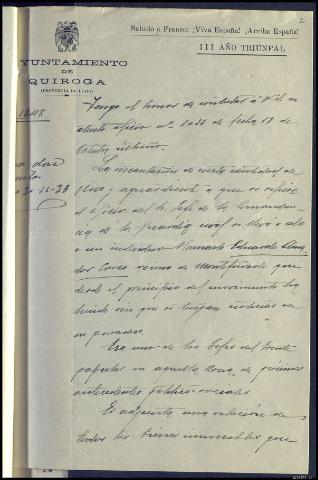 2.
Saludo a Franco: ¡Viva España! ¡Arriba España!
III AÑO TRIUNFAL
AYUNTAMIENTO
DE
QUIROGA
(PROVINCIA DE LUGO)
Tengo el honor de contestar á V.E. su
atento oficio nº de fecha 17 de
Octubre último.
La incautación de cierta cantidad de
vino y aguardiente a que se refiere
el oficio del Sr. Jefe de la Comandan-
cia de la guardia civil se llevó a cabo
a un individuo llamado Eduardo
vecino de Montefurado que
desde el principio del movimiento
huido sin que se tengan noticias de
su paradero.
Era uno de los Jefes del frente
popular en aquella zona, de pésimos
antecedentes político-sociales.
Es adjunta una relación de
todos los bienes inmuebles que